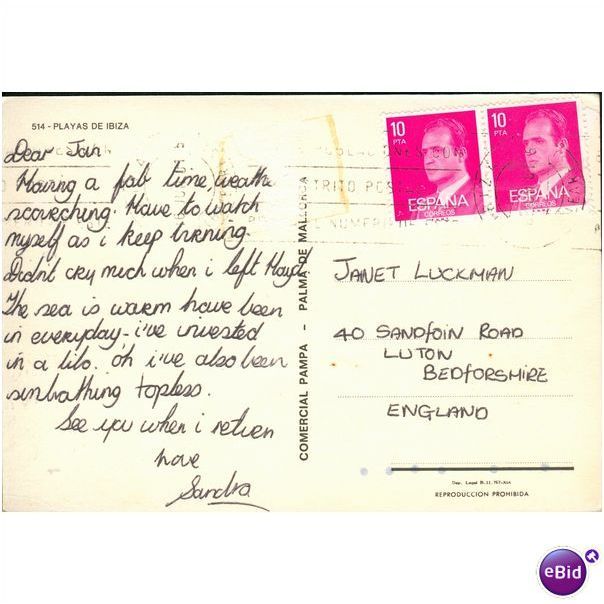 514 - PLAYAS DE IBIZA
Dear Jan
Having a fab time, weather
scourching. Have to watch
myself as i keep burning.
Didnt cry much when i left Floyd.
The sea is warm have been
in everyday, i've invested
in a lilo. oh i've also been
sunbathing topless.
See you when i return
Love
Sandra
COMERCIAL PAMPA - PALMA DE MALLORCA
10
PTA
ESPAÑA
CORREOS
10
PTA
ESPAÑA
CORREOS
JANET LUCKMAN
40 SANDFOIN ROAD
LUTON
BEDFORSHIRE
ENGLAND
REPRODUCCION PROHIBIDA
eBid